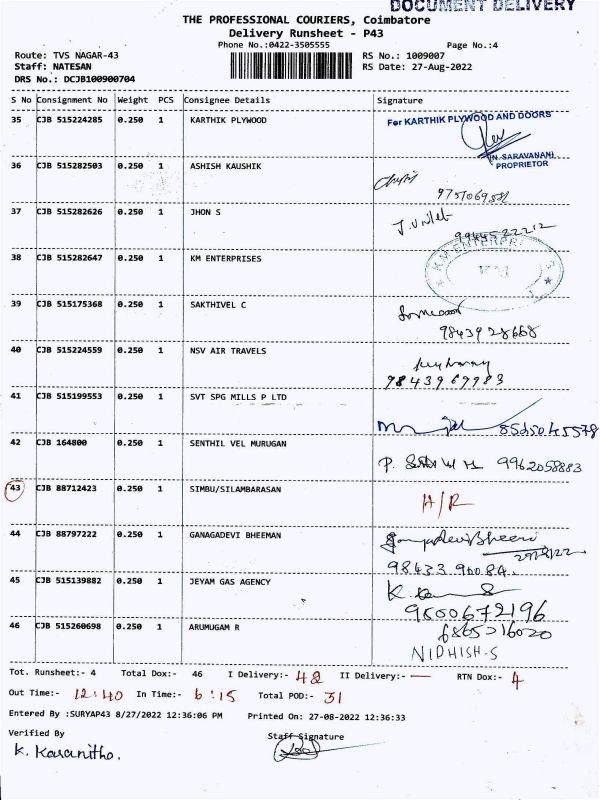 DOCUMENT DELIVERY
THE PROFESSIONAL COURIERS, Coimbatore
Delivery Runsheet - P43
Phone No.:0422-3505555 Page No.:4
Route: TVS NAGAR-43 RS No.: 1009007
Staff: NATESAN RS Date: 27-Aug-2022
DRS No.: DCJB100900704
S No Consignment No Weight PCS Consignee Details Signature
35 CJB 515224285 0.250 1 KARTHIK PLYWOOD For KARTHIK PLYWOOD AND DOORS
(N. SARAVANAN)
PROPRIETOR
36 CJB 515282503 0.250 1 ASHISH KAUSHIK
37 CJB 515282626 0.250 1 JHON S
9944522212
38 CJB 515282647 0.250 1 KM ENTERPRISES KM ENTERPRISES
39 CJB 515175368 0.250 1 SAKTHIVEL C
9843928668
40 CJB 515224559 0.250 1 NSV AIR TRAVELS
9843969983
41 CJB 515199553 0.250 1 SVT SPG MILLS P LTD
42 CJB 164800 0.250 1 SENTHIL VEL MURUGAN
P. 9962058883
43 CJB 88712423 0.250 1 SIMBU/SILAMBARASAN H/R
44 CJB 88797222 0.250 1 GANAGADEVI BHEEMAN
45 CJB 515139882 0.250 1 JEYAM GAS AGENCY
9600672196
46 CJB 515260698 0.250 1 ARUMUGAM R
NIDHISH-S
Tot. Runsheet:- 4 Total Dox:- 46 I Delivery:- 42 II Delivery:- — RTN Dox:- 4
Out Time:- 12:40 In Time:- 6:15 Total POD:- 31
Entered By :SURYAP43 8/27/2022 12:36:06 PM Printed On: 27-08-2022 12:36:33
Verified By Staff Signature
K. Karanitho.